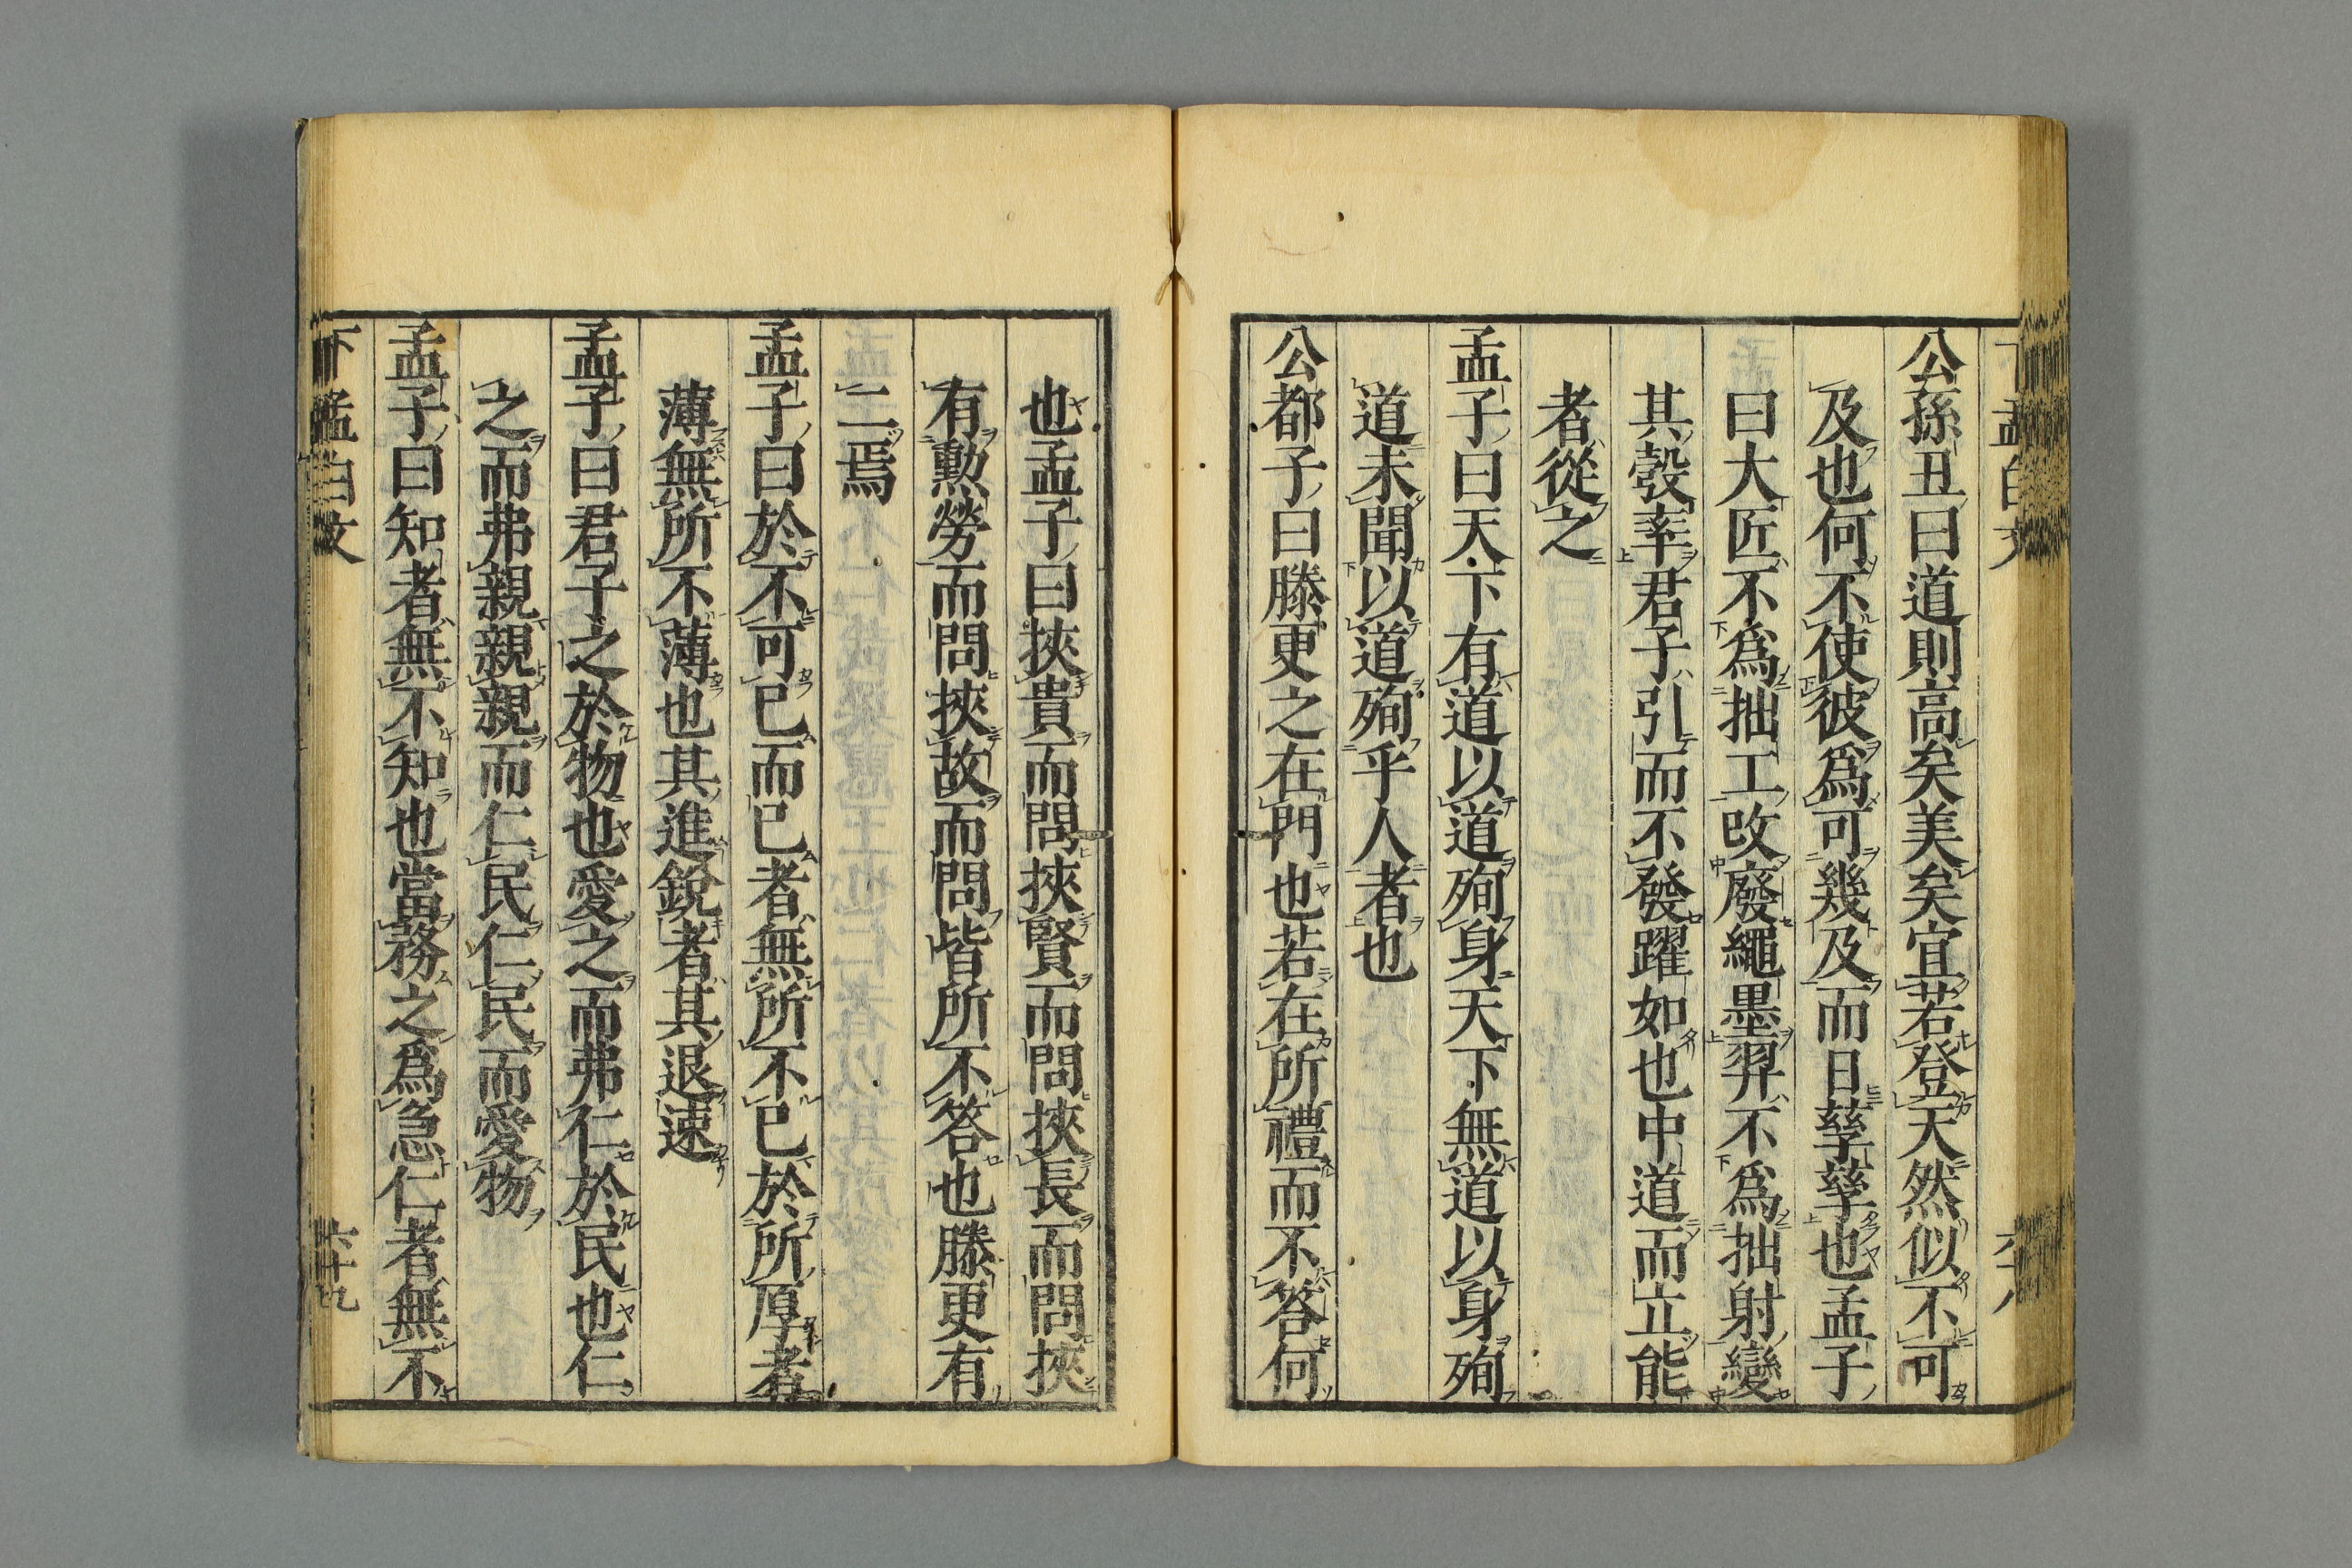 公孫丑曰道則高矣美矣宜若登天然似不可
及也何不使彼爲可幾及而日孳孳也孟子
曰大匠不爲拙工改廢繩墨羿不爲拙射變
其彀率君子引而不發躍如也中道而立能
者從之
孟子曰天下有道以道殉身天下無道以身殉
道未聞以道殉乎人者也
公都子曰滕更之在門也若在所禮而不答何
也孟子曰挾貴而問挾賢而問挾長而問挾
有勲勞而問挾故而問皆所不答也滕更有
二焉
孟子曰於不可已而已者無所不已於所厚者
薄無所不薄也其進鋭者其退速
孟子曰君子之於物也愛之而弗仁於民也仁
之而弗親親親而仁民仁民而愛物
孟子曰知者無不知也當務之爲急仁者無不
下孟白文 六十九